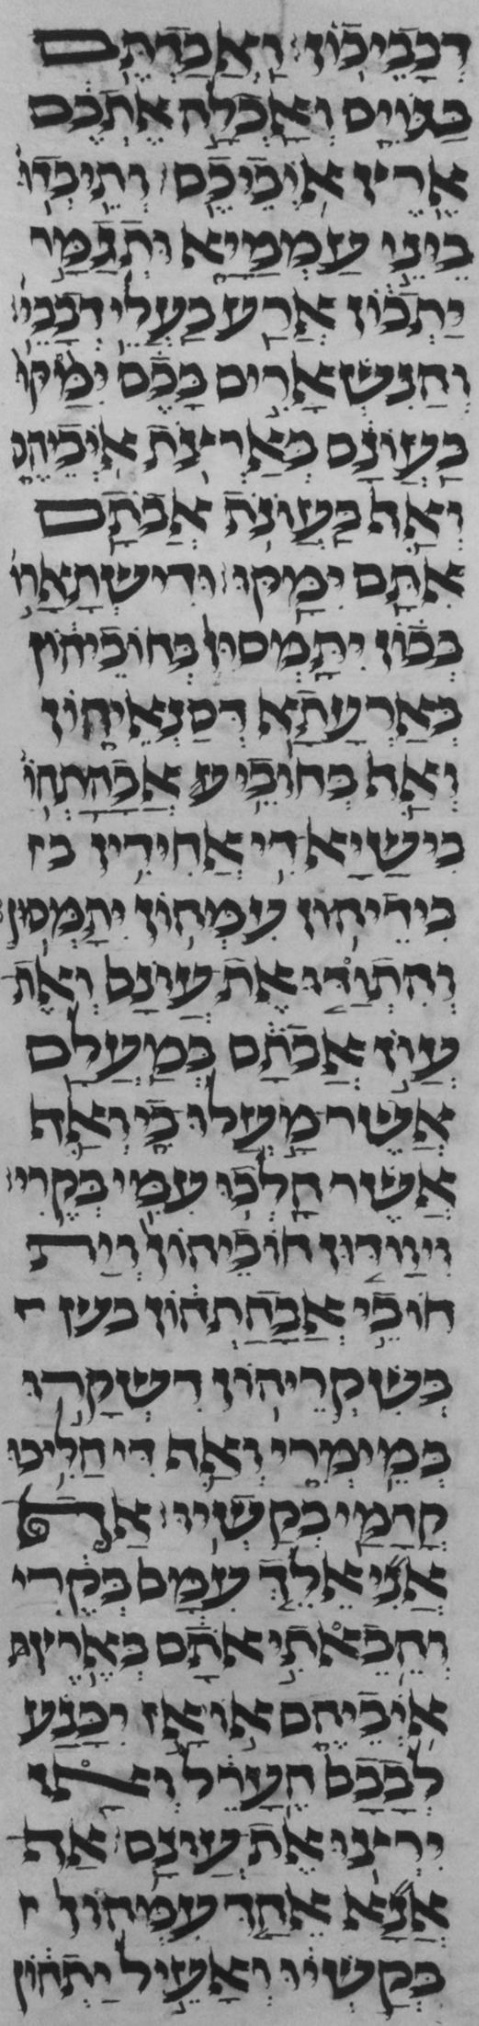 דבביכון׃ ואבדתם
בגוים ואכלה אתכם
ארץ איביכם׃ ותיבדו
ביני עממיא ותגמר
יתכון ארע בעלי דבביכ׳
והנשארים בכם ימקו
בעונם בארצת איביהם
ואף בעונת אבתם
אתם ימקו׃ ודישתארו׳
בכון יתמסון בחוביהון
בארעתא דסנאיהון
ואף בחובי ע אבהתהו׳
בישיא די אחידין בי
בידיהון עמהון יתמסון׃
והתודו את עונם ואת
עון אבתם במעלם
אשר מעלו בי ואף
אשר הלכו עמי בקרי׃
ויודון חוביהון וית
חובי אבהתהון בעק ׳
בשקריהון דשקרו
במימרי ואף די הליכו
קדמי בקשיו׃ אף
אני אלך עמם בקרי
והבאתי אתם בארץ
איביהם או אז יכנע
לבבם הערל ואז
ירצו את עונם׃ אף
אנא אהך עמהון ׳
בקשיו ואעיל יתהון